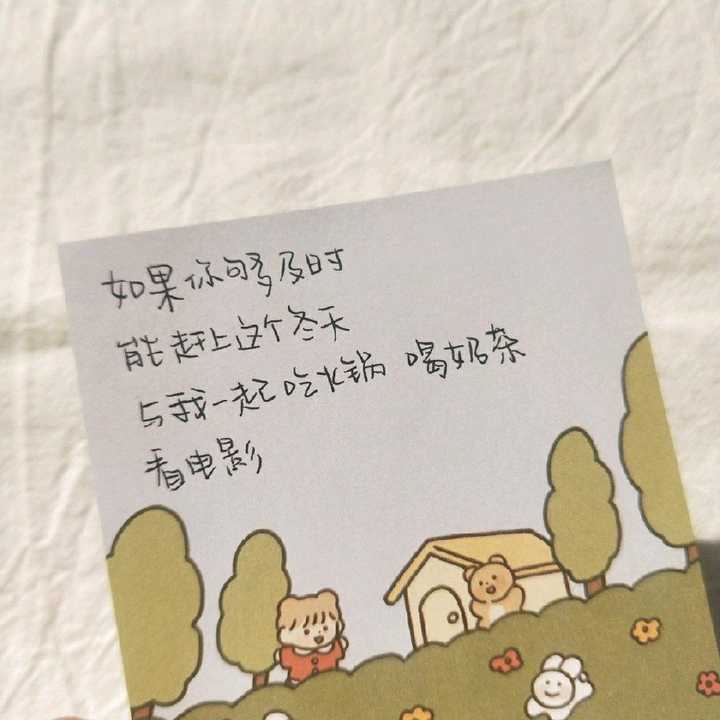 如果你够及时
能赶上这个冬天
与我一起吃火锅 喝奶茶
看电影